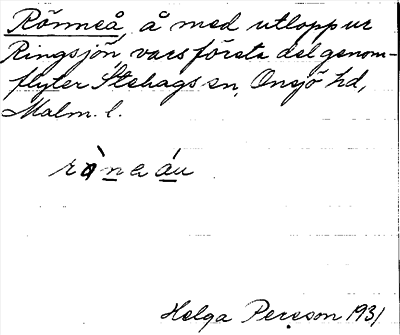 Rönneå, å med utlopp ur
Ringsjön, vars första del genom-
flyter Stehags sn, Onsjö hd,
Malm. l.
ròneáu
Helga Persson 1931